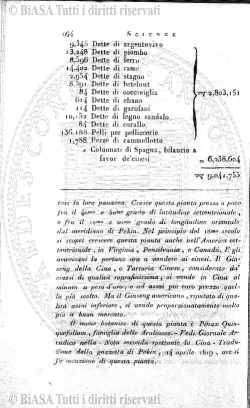 164 SCIENZE
9,345 Dette di argentovivo
13,248 Dette di piombo
8,596 Dette di ferro
14,402 Dette di rame
2,954 Dette di stagno
8,791 Dette di betelnut
84 Dette di cocciniglia
614 Dette di ebano
114 Dette di garofani
Dette di legno sandalo
84 Dette di corallo
136,188 Pelli per pelliccerie
1,788 Pezze di cammellotto
Colonnati di Spagna, bilancio a
favor de'cinesi 6,238,604
9,041,755
tutti la loro panacea. Cresce questa pianta presso a poco
fra il e grado di latitudine settentrionale,
e fra il e grado di longitudine orientale
dal meridiano di Pekin. Nel principio del secolo
si scoprì crescere questa pianta anche nell'America set-
tentrionale, in Virginia, Pensilvania, e Canadà. E gli
americani la portano ora a vendere ai cinesi. Il Gin-
seng della Cina, o Tartaria Cinese, considerato da'
cinesi di qualità si vende in Cina al
minuto a peso d'oro, e ad assai più caro prezzo quel-
lo più scelto. Ma il Ginseng americano, riputato di qua-
lità assai inferiore, si vende proporzionatamente molto
più a buon mercato.
Il nome botanico di questa pianta è Panax Quin-
quefolium, famiglia delle Araliacee. - Vedi Giornale Ar-
cadico nella - Nota secondo spettante la Cina - Tradu-
zione della gazzetta di Pekin, 14 aprile 1819, ove si
fa menzione di questa pianta.